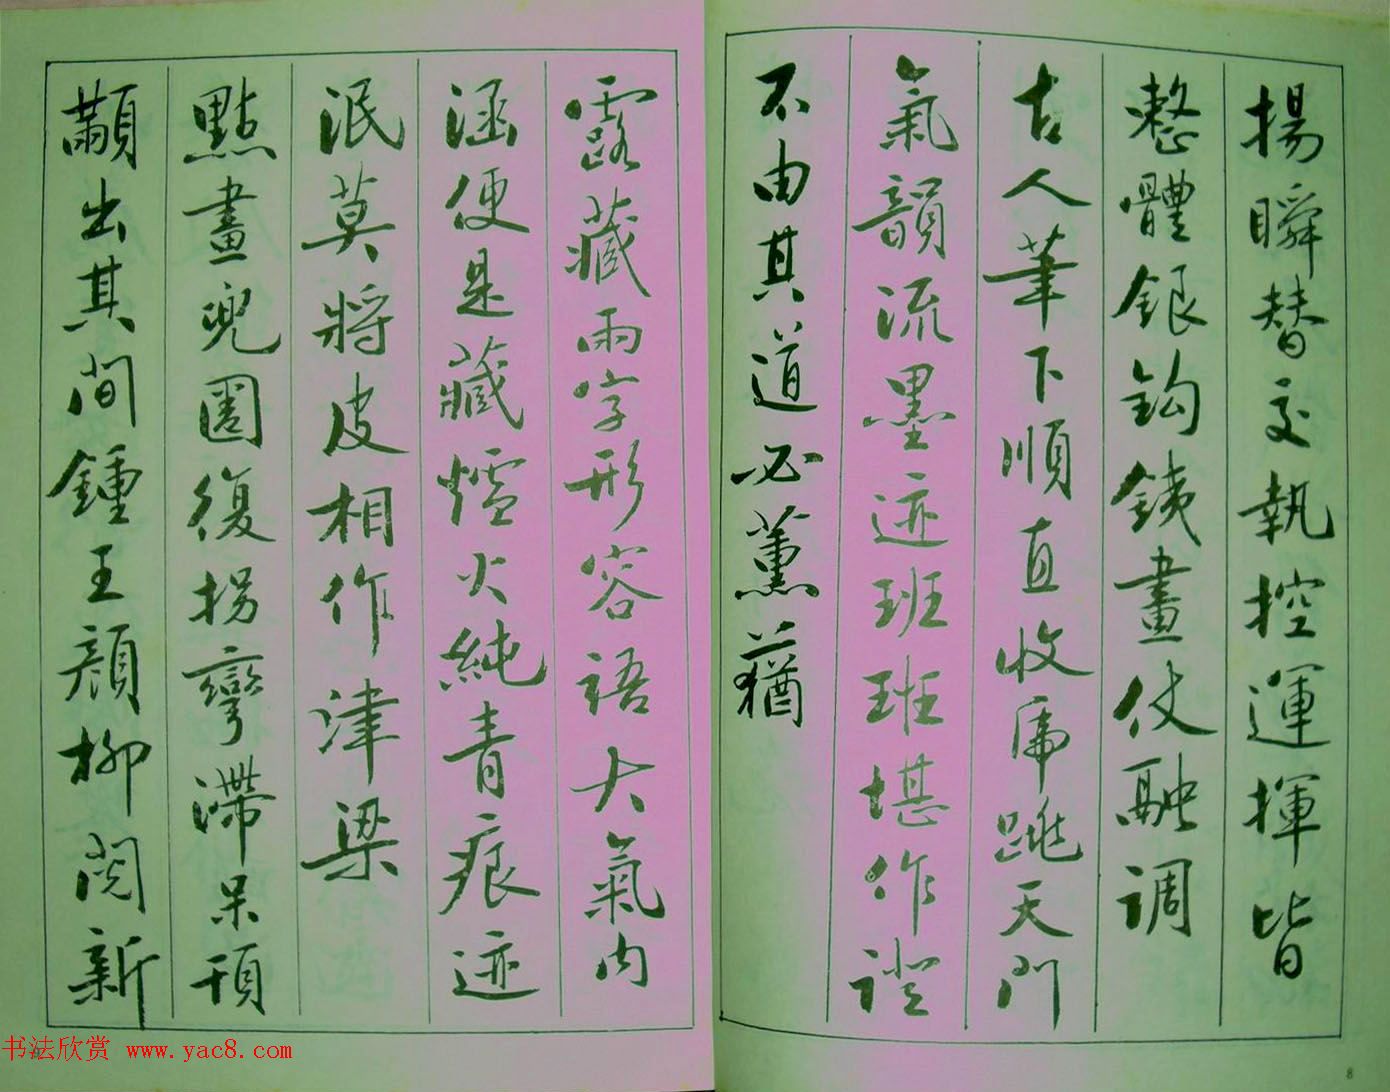 揚瞬替交執控運揮皆
整體銀鈎鐵畫仗融调
古人筆下順直收虎跳天門
氣韻流墨迹班班堪作證
不由其道必薰蕕
露藏兩字形容语大氣内
涵便是藏爐火純青痕迹
泯莫將皮相作津梁
點畫兜圈復拐彎滯呆頓
顢出其间鍾王顔柳阅新
书法欣赏 www.yac8.com
8